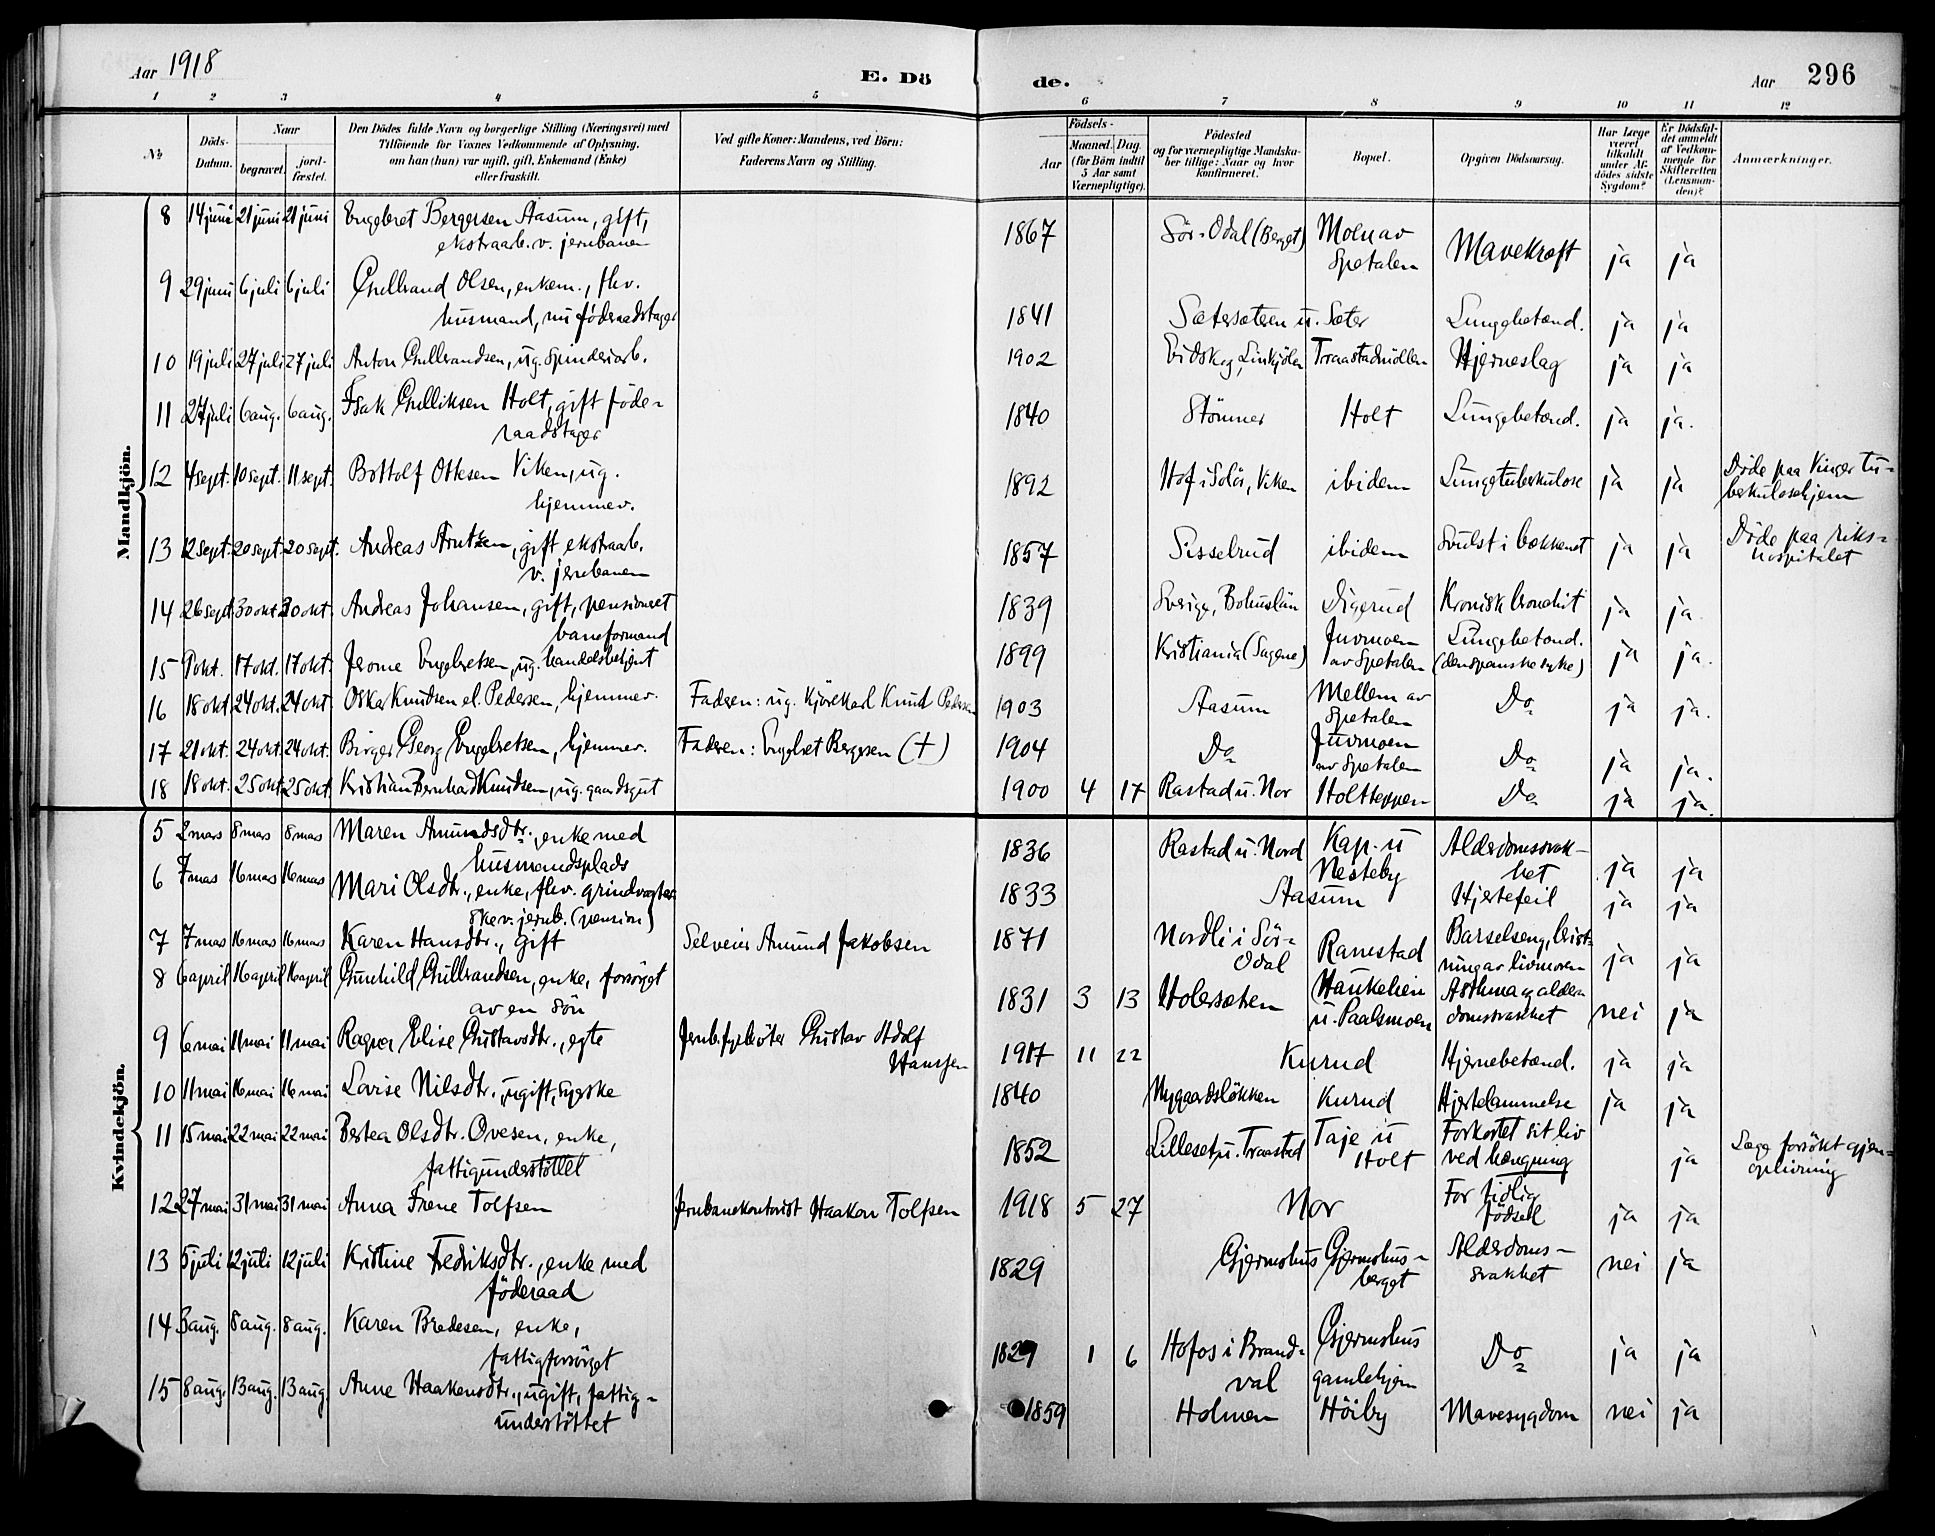 Aar 1918
E. Dö
de.
Aar
296
1 2 3 4 5 6 7 8 9 10 11 12
№
Döds-
Datum.
Naar
begravet.
jord-
fæstet.
Den Dödes fulde Navn og borgerlige Stilling (Næringsvei) med
Tilföiende for Voxnes Vedkommende af Oplysning,
om han (hun) var ugift, gift, Enkemand (Enke)
eller fraskilt.
Ved gifte Koner: Mandens, ved Börn:
Faderens Navn og Stilling.
Födsels-
Aar
Maaned. Dag.
(for Börn indtil
5 Aar samt
Værnepligtige).
Födested
og for værnepligtige Mandska-
ber tillige: Naar og hvor
konfirmeret.
Bopæl.
Opgiven Dödsaarsag.
Har Læge
været
tilkaldt
under Af-
dödes sidste
Sygdom?
Er Dödsfal-
det anmeldt
af Vedkom-
mende for
Skifteretten
(Lensman-
den)?
Anmærkninger.
Mandkjön.
8 14 juni 21 juni 21 juni Engebret Bergersen Aasum, gift,
ekstraarb. v. jernbanen
1867 Sör-Odal (Berget) Moen av
Spetalen Mavekræft ja ja
9 29 juni 6 juli 6 juli Gulbrand Olsen, enkem., fhv.
husmand, nu föderaadstager
1841 Sætersæteren u. Sæter Lungebetænd. ja ja
10 19 juli 27 juli 27 juli Anton Gulbrandsen, ug. Spinderiarb.
1902 Eidskog, Linkjölen Traastadmöllen Hjerneslag ja ja
11 27 juli 6 aug. 6 aug. Isak Gulliksen Holt, gift föde-
raadstager
1840 Stömner Holt Lungebetænd. ja ja.
12 4 sept. 10 sept. 11 sept. Bottolf Ottesen Viken, ug.
hjemmev.
1892 Hof i Solör, Viken ibidem Lungetuberkulose ja ja Döde paa Vinger tu-
berkulosehjem
13 12 sept. 20 sept. 20 sept. Andreas Arntzen, gift ekstraarb.
v. jernbanen
1857 Sisselrud ibidem Svulst i bækkenet ja ja Döde paa riks-
hospitalet
14 26 sept. 30 okt. 30 okt. Andreas Johansen, gift, pensioneret
baneformand
1839 Sverige, Bohuslän Digerud Kronisk bronchit ja ja
15 9 okt. 17 okt. 17 okt. Jerome Engebretsen, ug. handelsbetjent
1899 Kristiania (Sagene) Juvmoen
av Spetalen Lungebetænd.
(den spanske syke) ja ja.
16 18 okt. 24 okt. 24 okt. Oskar Knudsen el. Pedersen, hjemmev. Faderen: ug. kjörekarl Knud Pedersen
1903 Aasum Mellem av
Spetalen Do ja ja.
17 21 okt. 24 okt. 24 okt. Birger Georg Engebretsen, hjemmev. Faderen: Engebret Bergersen (†)
1904 Do Juvmoen
av Spetalen Do ja ja.
18 18 okt. 25 okt. 25 okt. Kristian Bernhard Knudsen, ug. gaardsgut
1900 4 17 Rastad u. Nor Holtteppen Do ja ja.
Kvindekjön.
5 2 mars 8 mars 8 mars Maren Amundsdtr., enke med
husmandsplads
1836 Rastad u. Nord Kap. u
Nesteby Alderdomssvak-
het ja ja
6 7 mas 16 mas 16 mas Mari Olsdtr., enke, fhv. grindvogter-
ske v. jernb. (pension)
1833 Aasum Hjertefeil ja ja
7 7 mas 16 mas 16 mas Karen Hansdtr., gift Selveier Amund Jakobsen
1871 Nordli i Sör-
Odal Ramstad Barselseng, brist-
ning av livmoren ja ja
8 6 april 16 april 16 april Gunhild Gulbrandsen, enke, forsörget
av en sön
1831 3 13 Holersæten Haukelien
u. Paalsmoen Asthma og alder-
domssvakhet nei ja
9 6 mai 11 mai 11 mai Ragna Elise Gustavsdtr., egte Jernb.fyrböter Gustav Adolf
Hanssen
1917 11 22 Kurud Hjernebetænd. ja ja
10 11 mai 16 mai 16 mai Lovise Nilsdtr., ugift, syerske
1840 Nygaardslökken Kurud Hjertelammelse ja ja
11 15 mai 22 mai 22 mai Bertea Olsdtr. Ovesen, enke,
fattigunderstöttet
1852 Lilleset u. Traastad Taje u
Holt Forkortet sit liv
ved hængning ja Læge forsökt gjen-
oplivning
12 27 mai 31 mai 31 mai Anna Irene Tolfsen Jernbanekontorist Haakon Tolfsen
1918 5 27 Nor For tidlig
födsel ja ja
13 5 juli 12 juli 12 juli Kristine Fredriksdtr., enke med
föderaad
1829 Gjermshus Gjermshus-
berget Alderdoms-
svakhet nei ja
14 3 aug. 8 aug. 8 aug. Karen Bredesen, enke,
fattigforsörget
1829 1 6 Hofos i Brand-
val Gjermshus
gamlehjem Do ja ja
15 8 aug. 13 aug. 13 aug. Anne Haakensdtr., ugift, fattig-
understöttet
1859 Holmen Höiby Mavesygdom nei ja